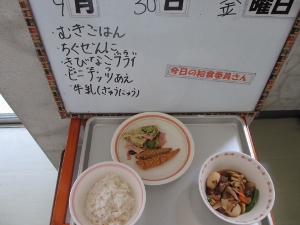 9月30日 金曜日
・むぎごはん
・ちくぜんに
・きびなごフライ
・ピーナッツあえ
・牛乳(ぎゅうにゅう)
今日の給食委員さん